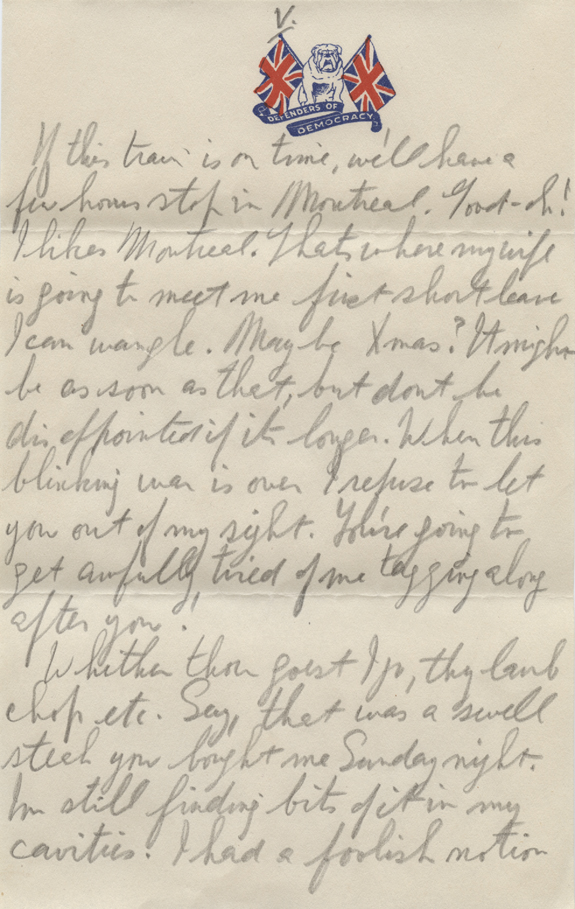 V.
DEFENDERS OF
DEMOCRACY
If this train is on time, we'll have a
few hours stop in Montreal. Good-oh!
I likes Montreal. Thats where my wife
is going to meet me first short leave
I can wangle. Maybe Xmas? It might
be as soon as that, but dont be
disappointed if its longer. When this
blinking war is over I refuse to let
you out of my sight. You're going to
get awfully tired of me tagging along
after you.
Whither thou goest I go, thy lamb
chop etc. Say, that was a swell
steak you bought me Sunday night.
Im still finding bits of it in my
cavities. I had a foolish notion